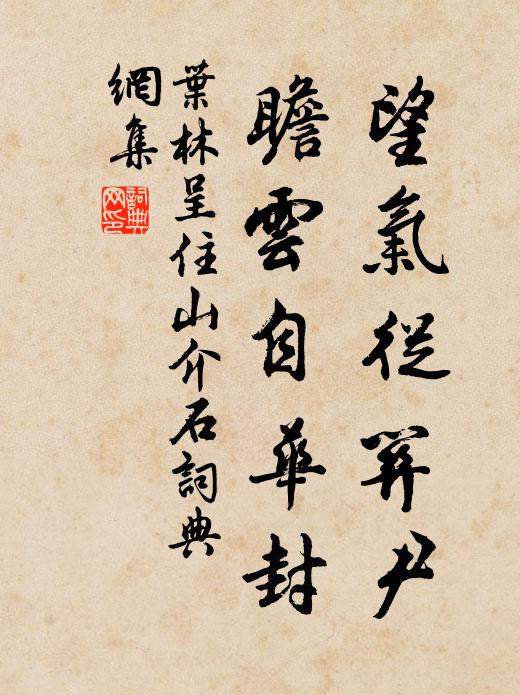 望氣從關尹
瞻雲自華封
葉林呈住山介石詞典
網集
詞典
网印